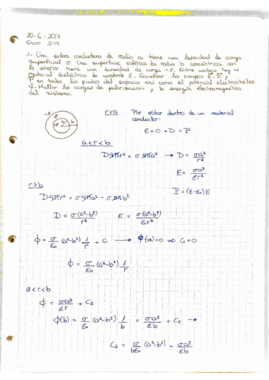 20-6-2017
1.- Una esfera conductora de radio a tiene una densidad de carga
superficial σ. Una superficie esférica de radio b concéntrica con
la anterior tiene una densidad de carga -σ. Entre ambas hay un
material dieléctrico de unidades ε. Encontrar los campos E, D, P
en todos los puntos del espacio así como el potencial electrostático
Φ. Hallar las cargas de polarización y la energía electromagnética
del sistema.
r<a Por estar dentro de un material
conductor:
E=0=D=P
a<r<b
D4πr² = σ4πa² → D = σa²/r²
E = σa²/εr²
P = (ε-ε₀)E
r>b
D4πr² = σ4πa² - σ4πb²
D = σ(a²-b²)/r² E = σ(a²-b²)/ε₀r²
Φ = σ/ε₀ (a²-b²) 1/r + C → Φ(∞)=0 ⇒ C=0
Φ = σ/ε₀ (a²-b²) 1/r
a<r<b
Φ = σa²/εr + C₂
Φ(b) = σ/ε₀ (a²-b²) 1/b = σa²/εb + C₂
C₂ = σ/bε₀ (a²-b²) - σa²/εb